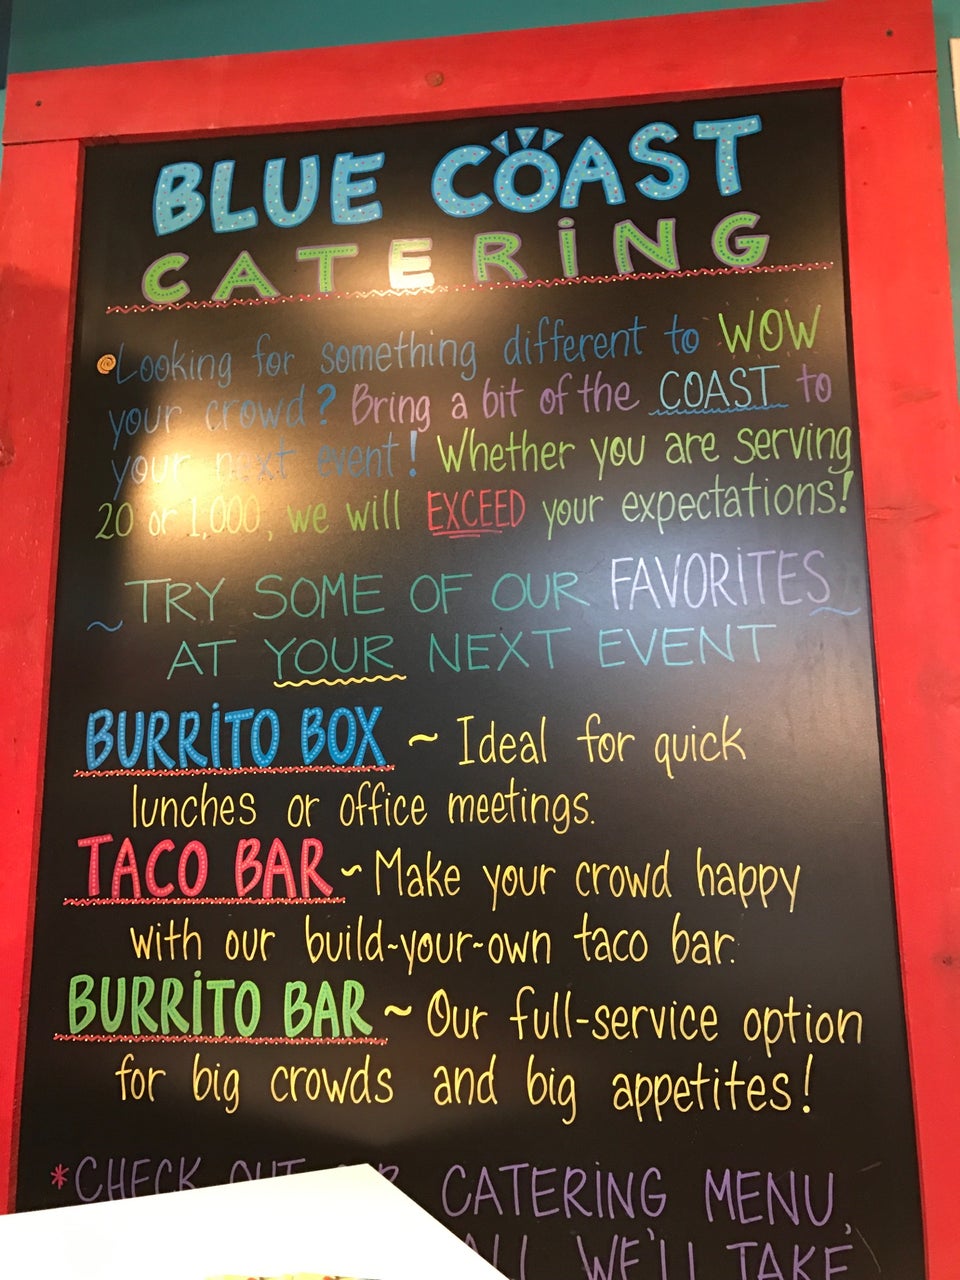 BLUE COAST
CATERING
Looking for something different to WOW
your crowd? Bring a bit of the COAST to
your next event! Whether you are serving
20 or 1,000, we will EXCEED your expectations!
~TRY SOME OF OUR FAVORITES~
AT YOUR NEXT EVENT
BURRITO BOX ~ Ideal for quick
lunches or office meetings.
TACO BAR ~ Make your crowd happy
with our build-your-own taco bar.
BURRITO BAR ~ Our full-service option
for big crowds and big appetites!
*CHECK OUT CATERING MENU,
WE'LL TAKE